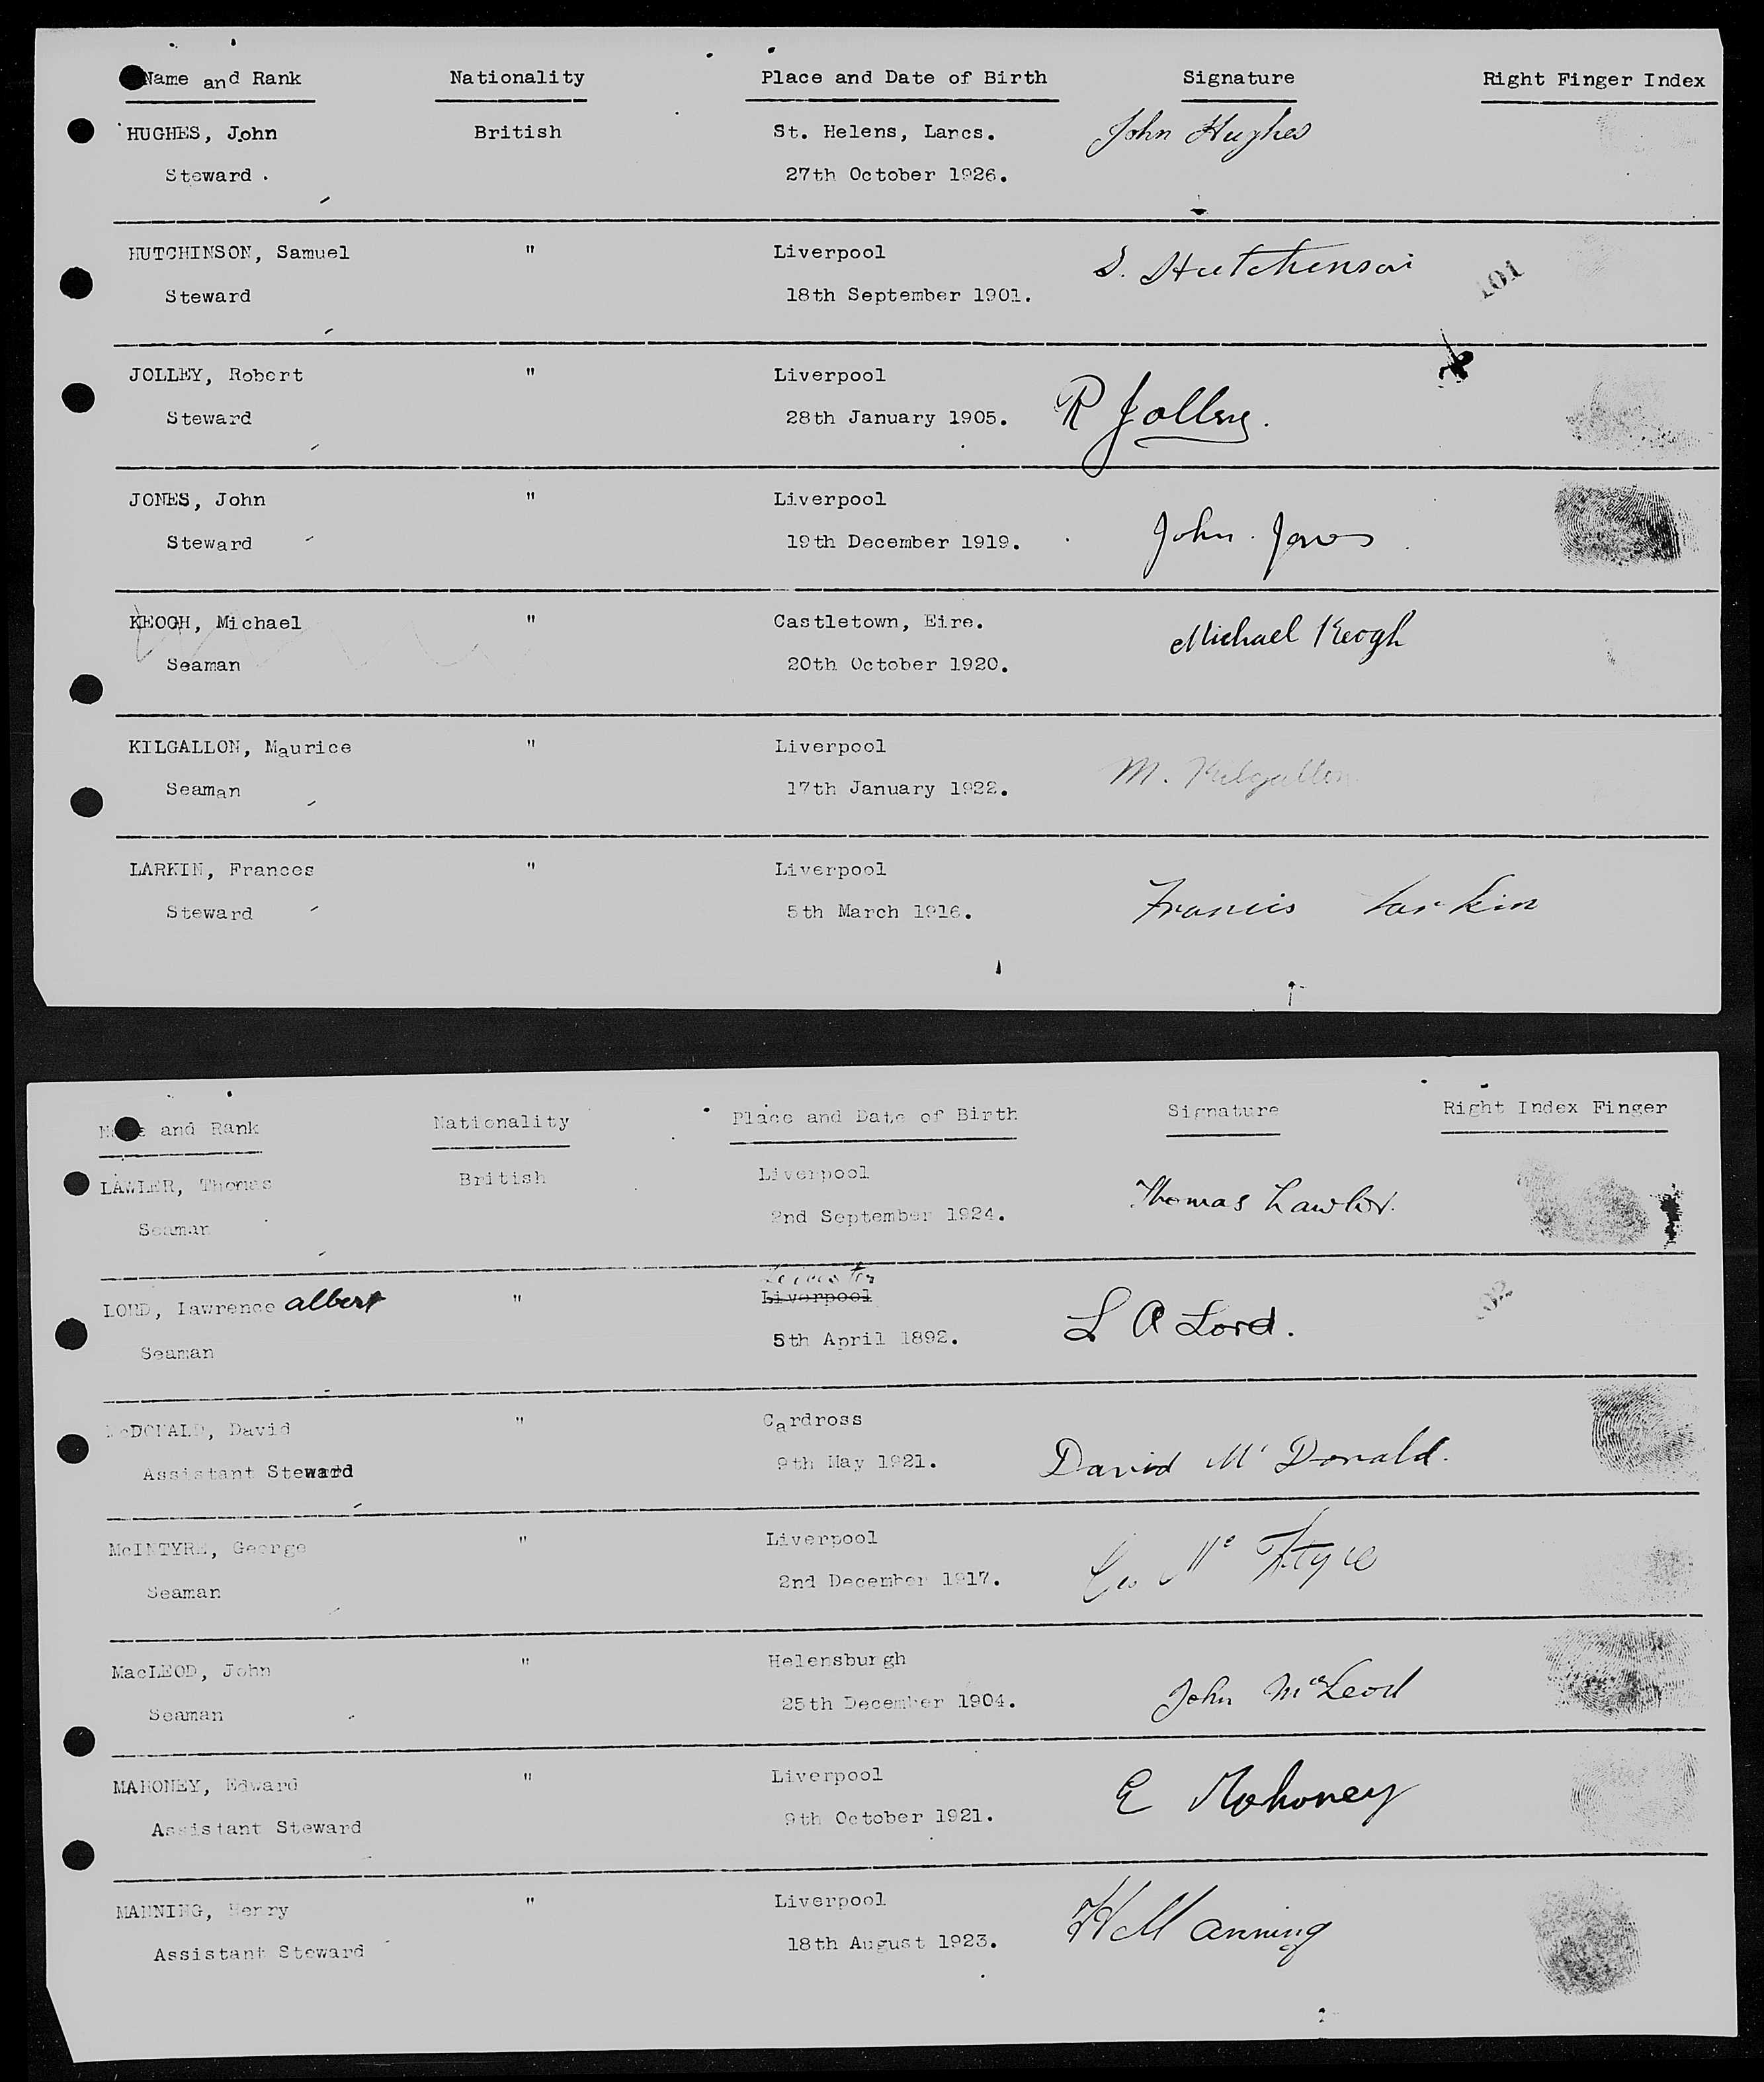 Name and Rank Nationality Place and Date of Birth Signature Right Finger Index
HUGHES, John British St. Helens, Lancs. John Hughes
Steward. 27th October 1926.
HUTCHINSON, Samuel " Liverpool S. Hutchinson
101
Steward 18th September 1901.
JOLLEY, Robert " Liverpool
Steward 28th January 1905. R Jolley.
JONES, John " Liverpool
Steward 19th December 1919. John. Jones
KEOGH, Michael " Castletown, Eire. Michael Keogh
Seaman 20th October 1920.
KILGALLON, Maurice " Liverpool
Seaman 17th January 1922. M. Kilgallon
LARKIN, Frances " Liverpool
Steward 5th March 1916. Francis Larkin
Name and Rank Nationality Place and Date of Birth Signature Right Index Finger
LAWLER, Thomas British Liverpool
Seaman 2nd September 1924. Thomas Lawler.
Leicester
LORD, Lawrence albert " Liverpool
02
Seaman 5th April 1892. L A Lord.
McDONALD, David " Cardross
Assistant Steward 9th May 1921. David Mc Donald.
McINTYRE, George " Liverpool
Seaman 2nd December 1917. Geo Mc Intyre
MacLEOD, John " Helensburgh
Seaman 25th December 1904. John McLeod
MAHONEY, Edward " Liverpool
Assistant Steward 9th October 1921. E Mahoney
MANNING, Henry " Liverpool
Assistant Steward 18th August 1923. H Manning